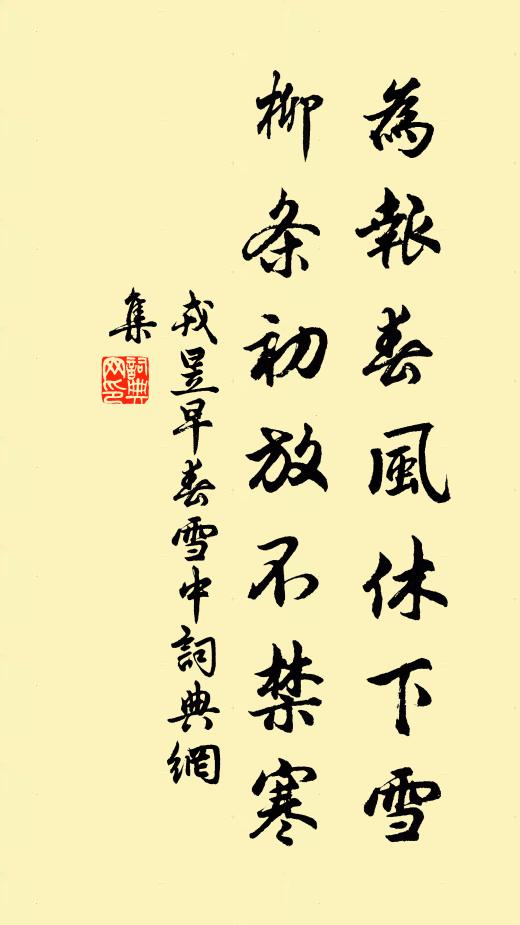 為報春風休下雪
柳条初放不禁寒
戎昱早春雪中詞典網
集
詞典
网印